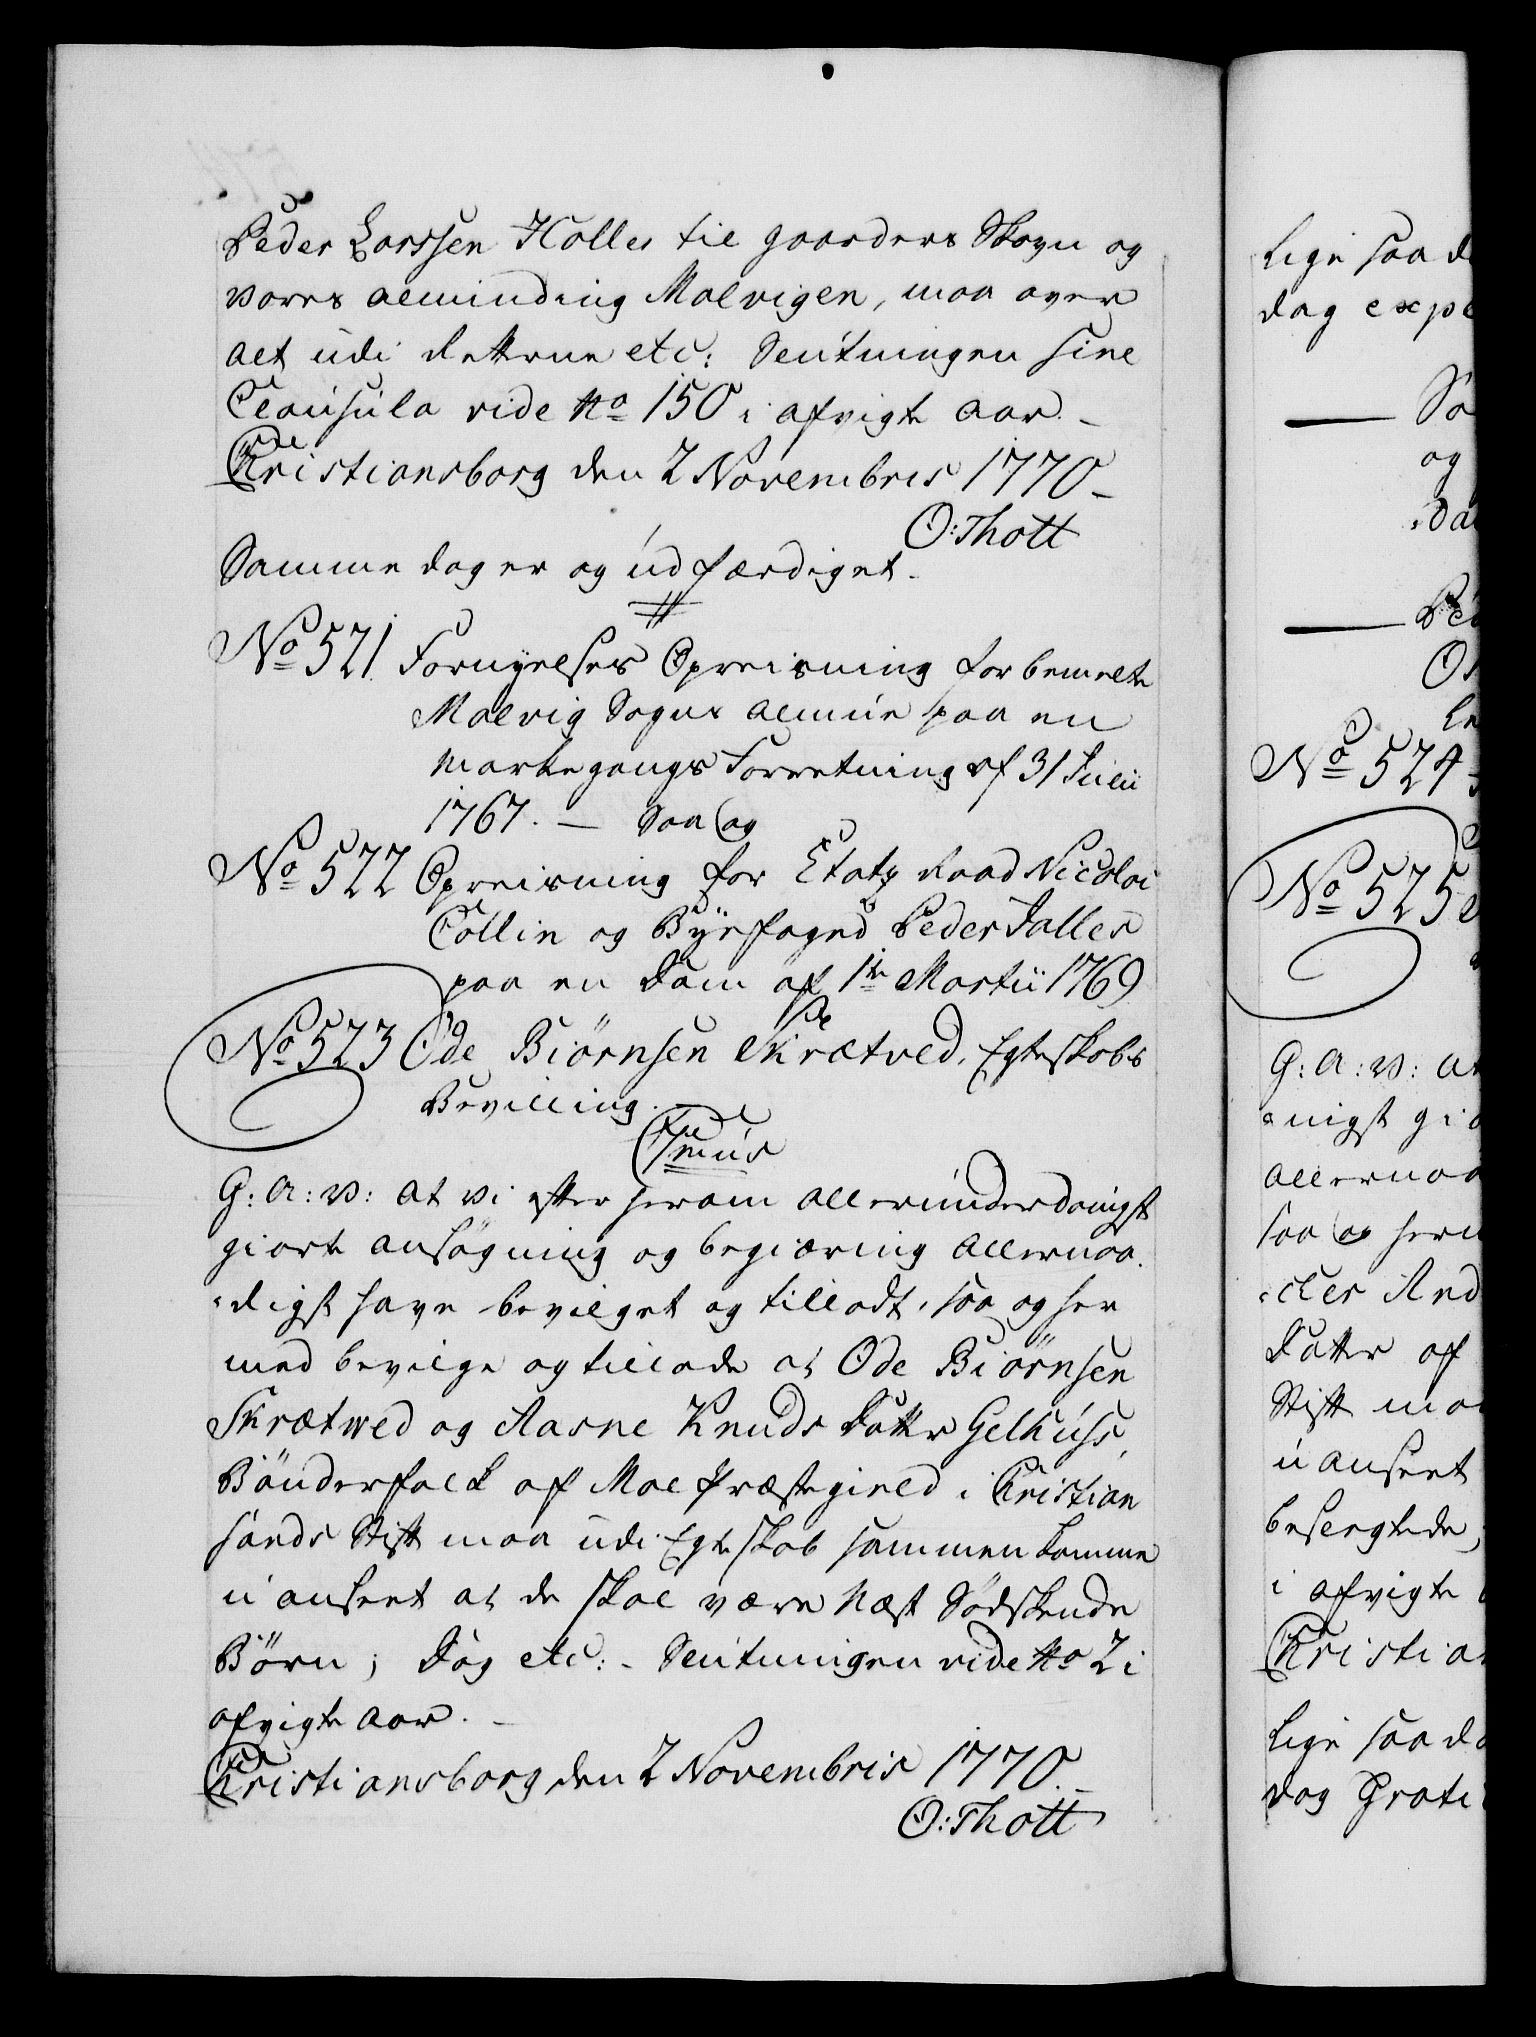 Peder Larssen Halles til gaarders Skove og
vores alminding Malvigen, maa over
alt udi dettene etc: Slutningen sine
Clausula vide No 150 i afvigte Aar. -
Christiansborg den 2 Novembris 1770 -
O: Thott
Samme dag er og udfærdiget.
No 521 Fornyelses Opreisning for bemelte
Malvig Sogns Almue paa en
Markegangs Forretning af 31 Julii
1767. — Saa og
No 522 Opreisning for Etatz Raad Nicolai
Collin og Byefoged Peder Saller
paa en Dom af 1te Martii 1769
No 523 Ode Biörnsen Skrætved, Egteskabs
Bevilling.
C 7mus
G: A: V: at vi efter herom allerunderdanigst
giorte ansögning og begiæring allernaa-
digst have bevilget og tilladt, saa og her
med bevilge og tillade at Ode Biörnsen
Skrætwed og Aasne Knuds Datter Gelhuss,
Bönderfolck af Moe Præstegield i Christian
sands Stift maa udi Egteskab sammen komme
uanseet at de skal være Næst Sødskende
Börn; Dog etc: - Slutningen vide No 2 i
afvigte Aar. -
Christiansborg den 2 Novembris 1770. -
O: Thott
lige saa d
dag expe
Sö
og
No 524
No 525
G: A: V: at
nigst gio
allernaa
saa og herm
cker And
Datter af
Stift maa
uanseet
besvogrede;
i afvigte
Christian
Lige saa da
dag Grati